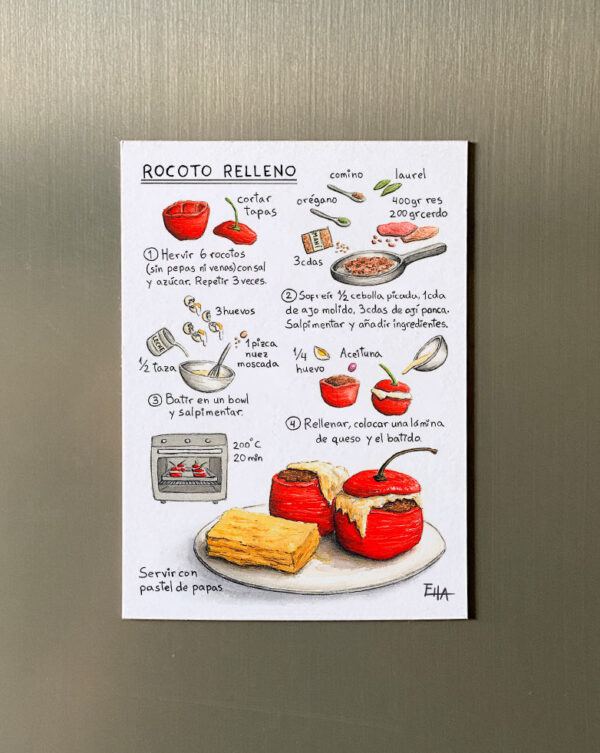 ROCOTO RELLENO
cortar
tapas
① Hervir 6 rocotos
(sin pepas ni venas) con sal
y azúcar. Repetir 3 veces.
comino
laurel
orégano
400gr res
200gr cerdo
MANÍ
3cdas
② Sofreír ½ cebolla picada, 1cda
de ajo molido, 3cdas de ají panca.
Salpimentar y añadir ingredientes.
3 huevos
LECHE
½ taza
1 pizca
nuez
moscada
③ Batir en un bowl
y salpimentar.
1/4
huevo
Aceituna
④ Rellenar, colocar una lámina
de queso y el batido.
200°C
20 min
Servir con
pastel de papas
EHA